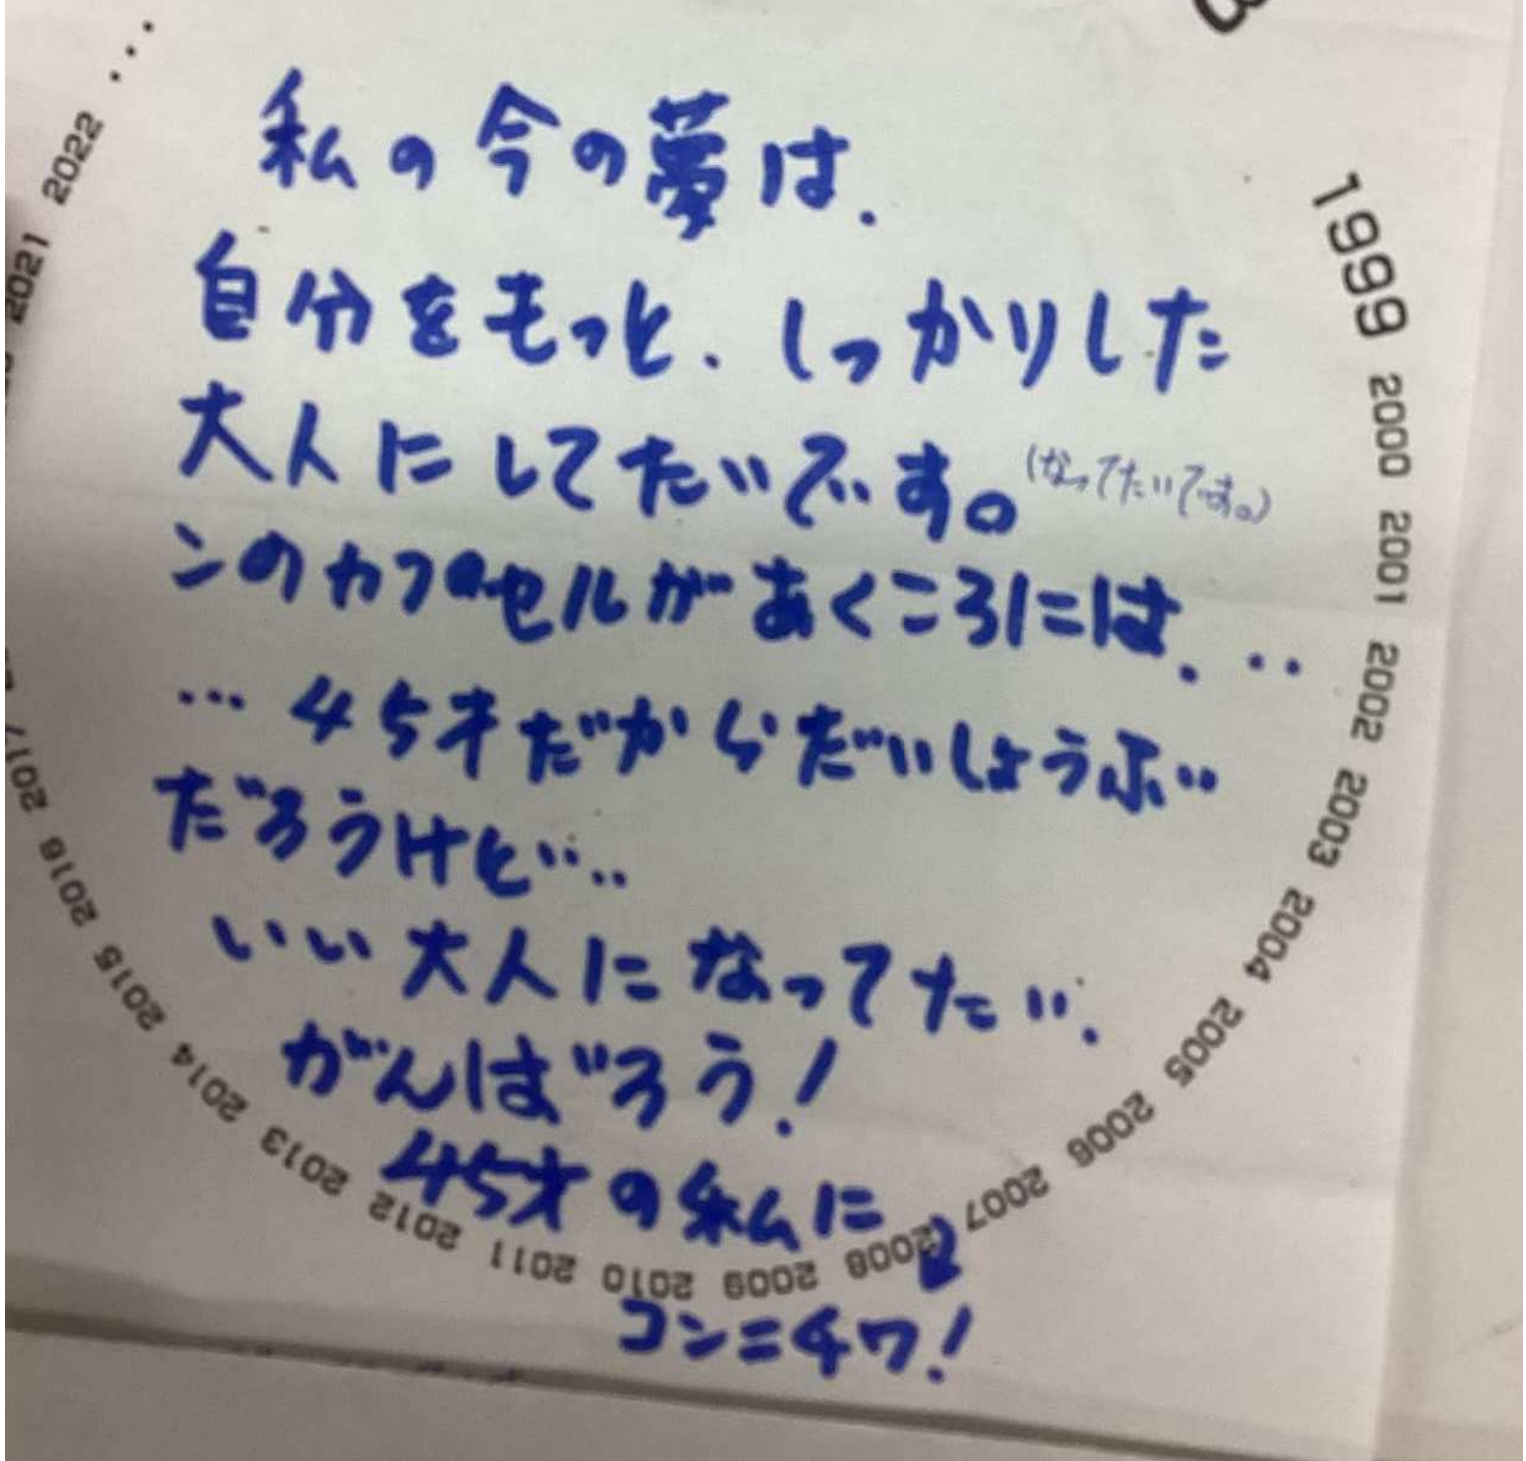 私の今の夢は.
自分をもっと、しっかりした
大人にしてたいです。(なってたいです。)
このカプセルがあくころには...
...45才だからだいじょうぶ..
だろうけど...
いい大人になってたい.
がんばろう!
45才の私に
コンニチワ!
1999 2000 2001 2002 2003 2004 2005 2006 2007 2008 2009 2010 2011 2012 2013 2014 2015 2016 2017
2021 2022 ...